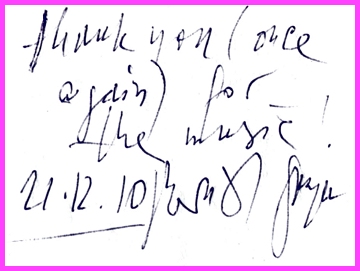 thank you (once
again) for
the music!
21.12.10